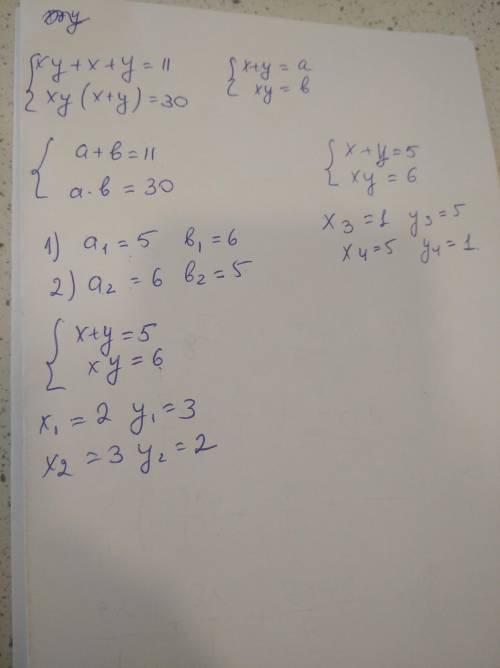 { xy + x + y = 11
xy (x+y) = 30
{ x+y = a
xy = b
{ a + b = 11
a · b = 30
1) a₁ = 5 b₁ = 6
2) a₂ = 6 b₂ = 5
{ x+y = 5
xy = 6
x₁ = 2 y₁ = 3
x₂ = 3 y₂ = 2
{ x + y = 5
xy = 6
x₃ = 1 y₃ = 5
x₄ = 5 y₄ = 1